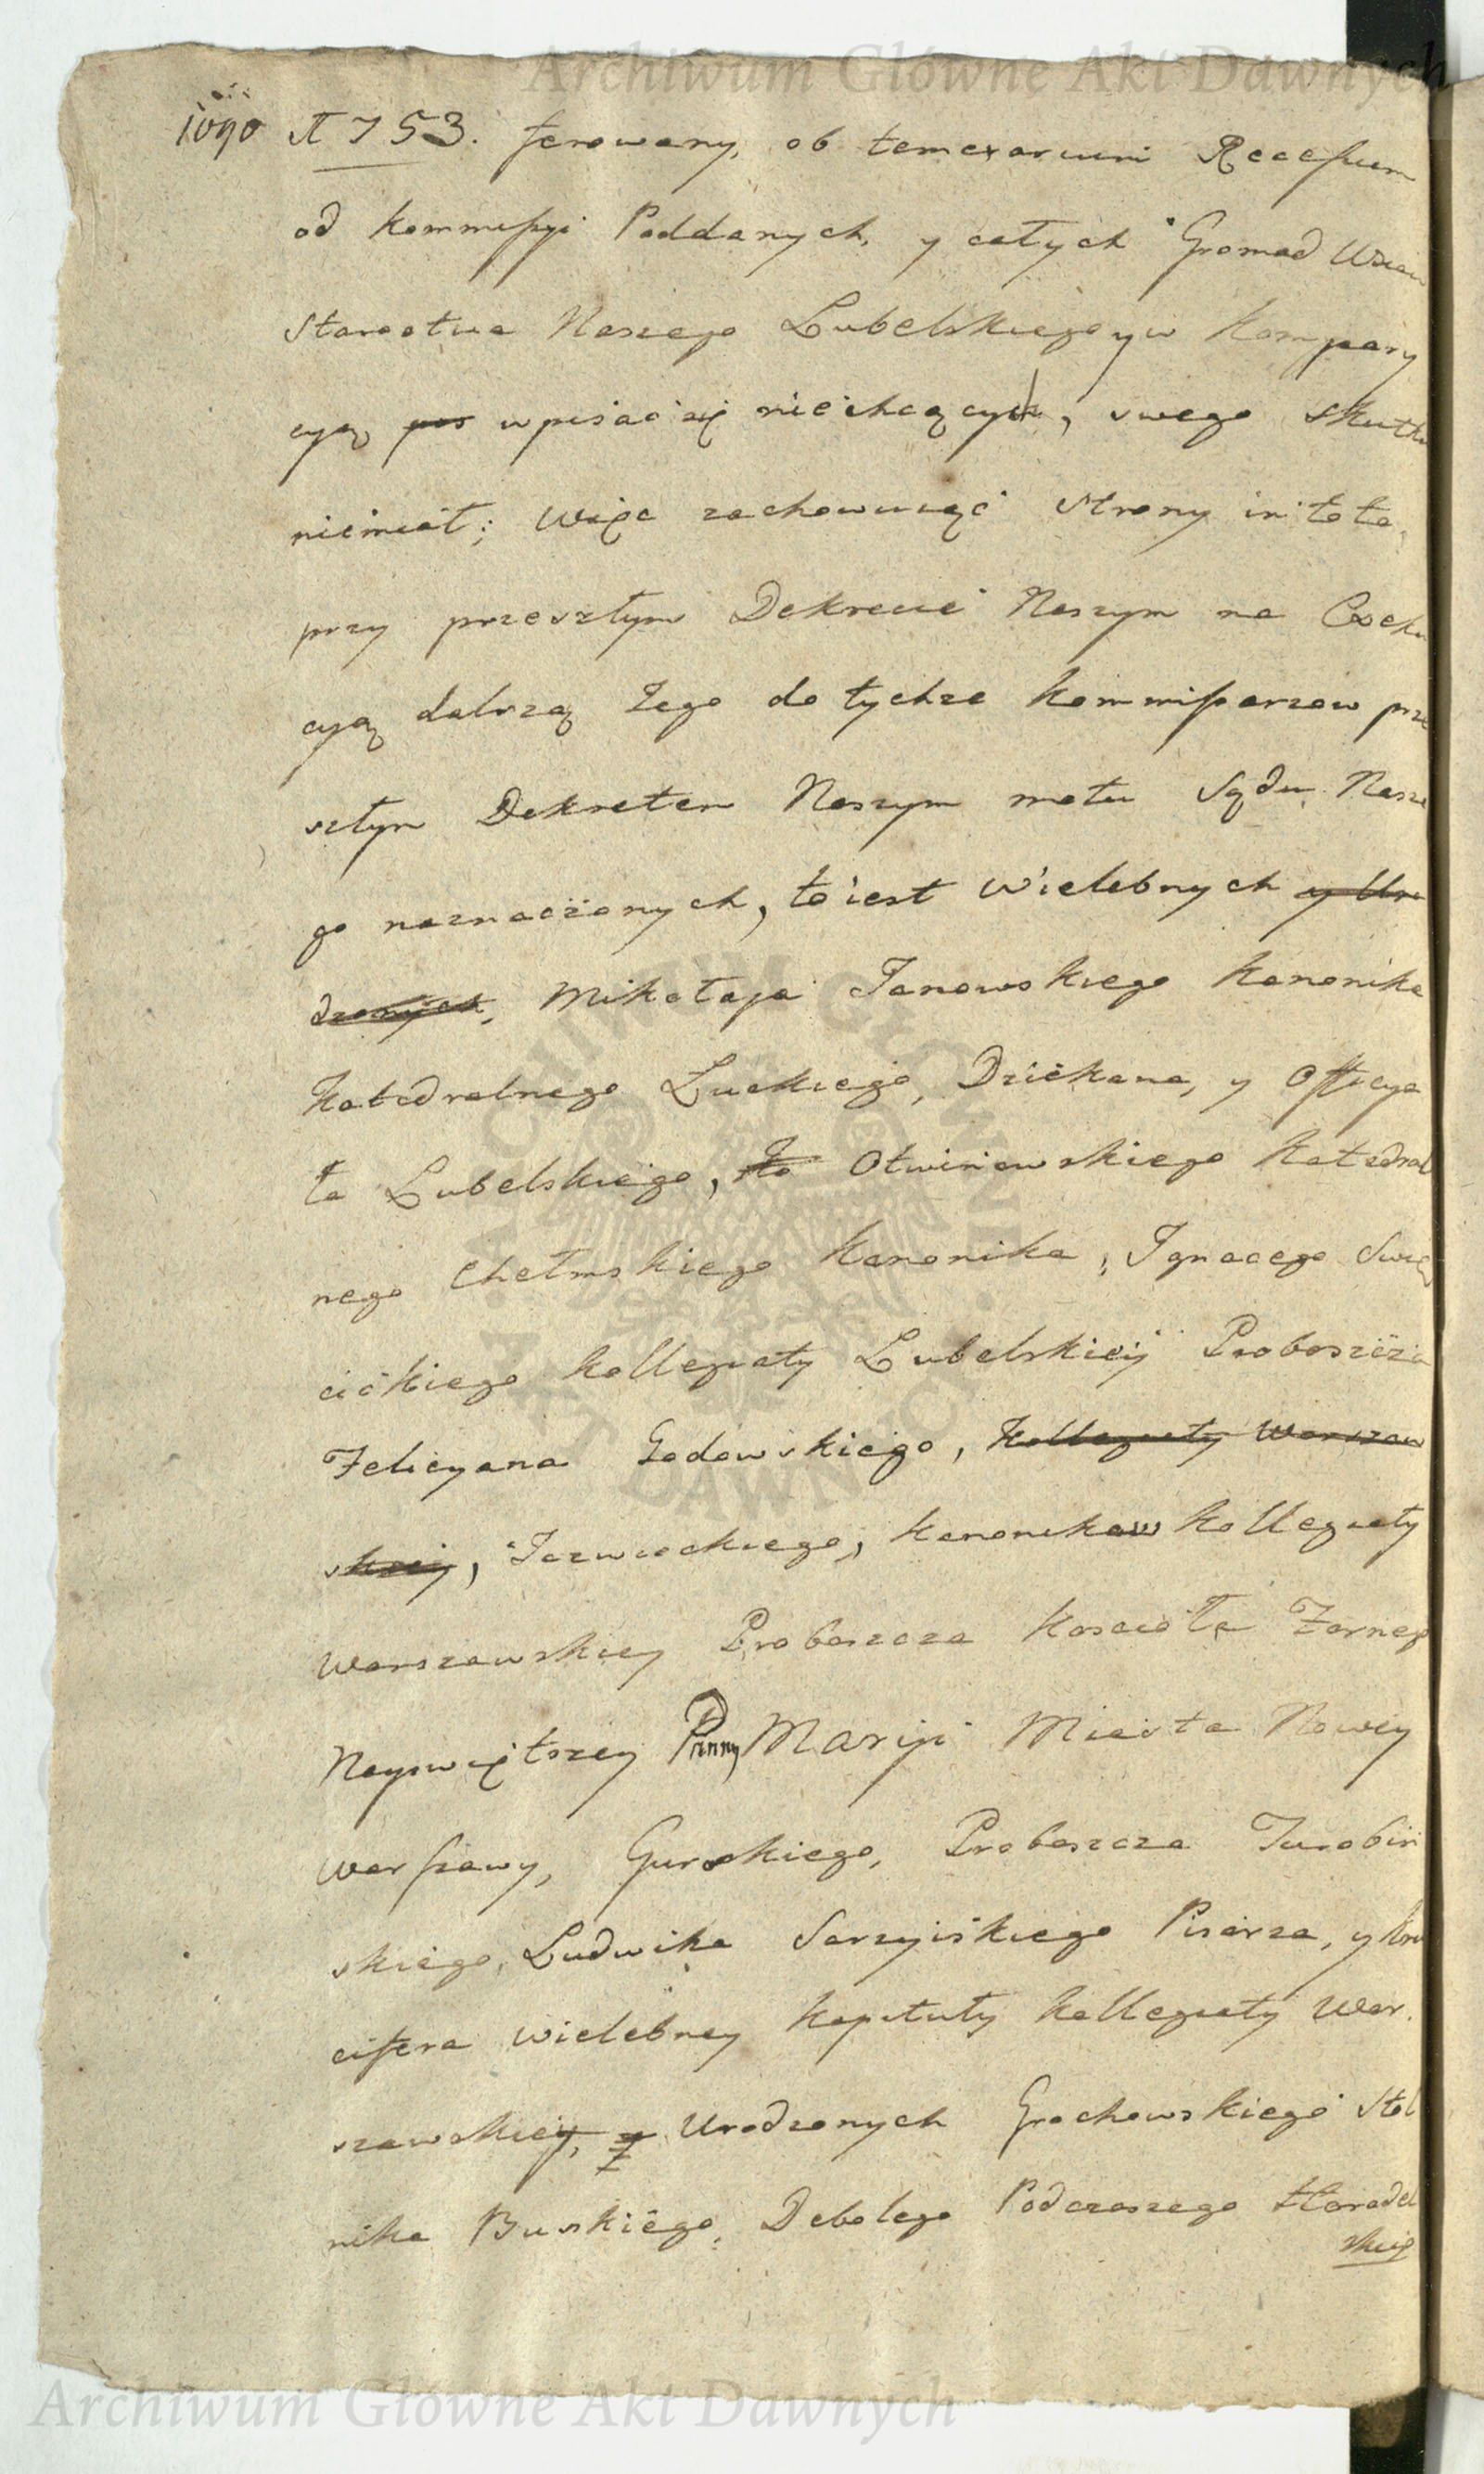 Archiwum Główne Akt Dawnych
1090 N 753. ferowany, ob temerarium Recessum
od kommissyi Poddanych, y całych Gromad Wsiow
Starostwa Naszego Lubelskiego y w kompary
cyą wpisać się niechcących, swego skutku
niemiał; Więc zachowuiąc strony in toto,
przy przeszłym Dekrecie Naszym na Exeku
cyą dalszą Jego do tychże kommissarzow prze
szłym Dekretem Naszym motu Sądu Nasze
go naznaczonych, to iest Wielebnych y Uro
dzonych, Mikołaja Janowskiego Kanonika
Katedralnego Łuckiego, Dziekana, y Officya
ła Lubelskiego, Otwinowskiego Katedral
nego Chełmskiego Kanonika, Ignacego Swię
cickiego kollegiaty Lubelskiey Proboszcza
Felicyana Godowskiego, Kollegiaty Warszaw
skiey, Jezwieckiego, kanonikow kollegiaty
Warszawskiey Proboszcza koscioła Farneg
Nayswiętszey Panny Maryi Miasta Nowey
Warszawy, Gurskiego, Proboszcza Turobiń
skiego, Ludwika Sarzyiskiego Pisarza, y kru
cifera wielebney kapituły kollegiaty War.
szawskiey, z Urodzonych Grochowskiego Stol
nika Buskiego, Debolego Podczaszego Horodel
skieg
ARCHIWUM GŁÓWNE
AKT DAWNYCH
Archiwum Główne Akt Dawnych